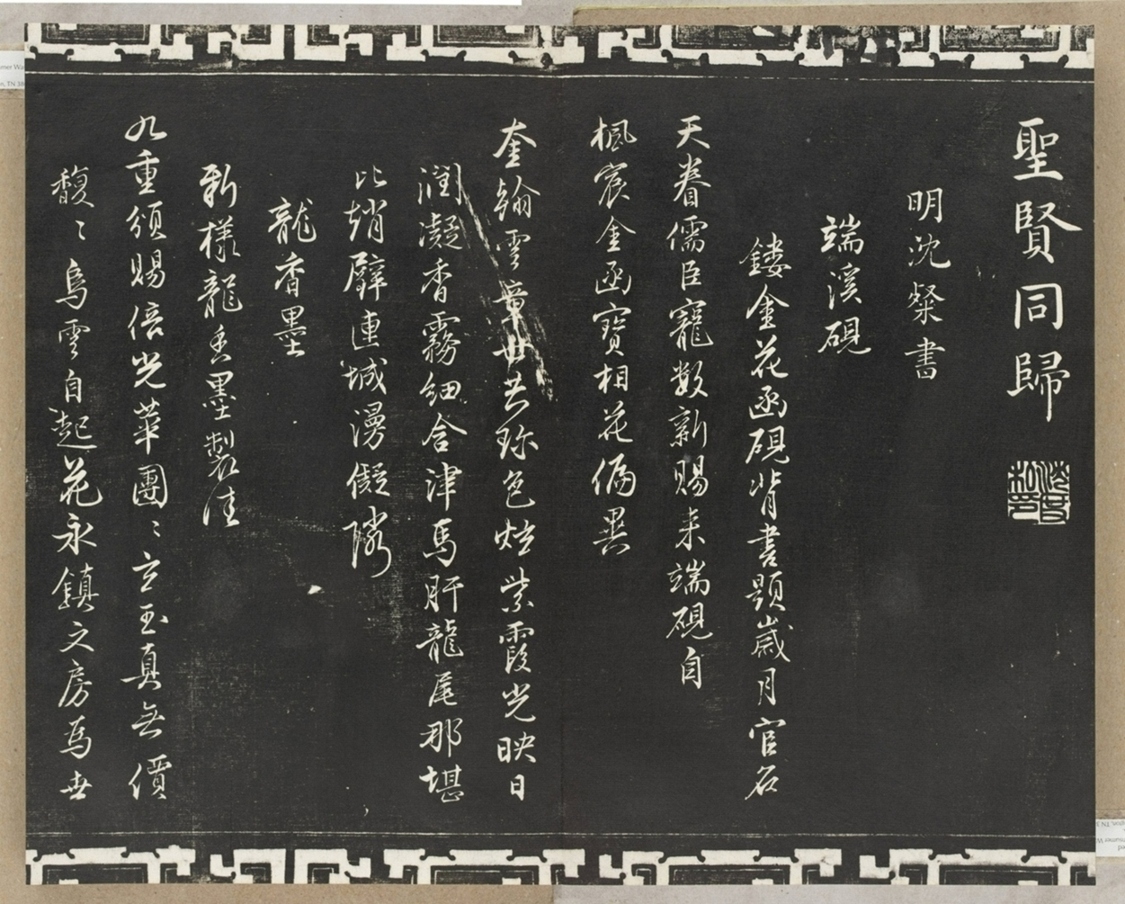 聖賢同歸
明沈粲書
端溪硯
鏤金花函硯背書題歲月官名
天眷儒臣寵數新賜來端硯自
楓宸金函寶相花偏異
奎翰雲章世共珍色炫紫霞光映日
潤凝香霧細含津馬肝龍尾那堪
比趙璧連城漫儗隣
龍香墨
新樣龍香墨製佳
九重頒賜倍光華團〻玄玉真無價
馥〻烏雲自起花永鎮文房為世